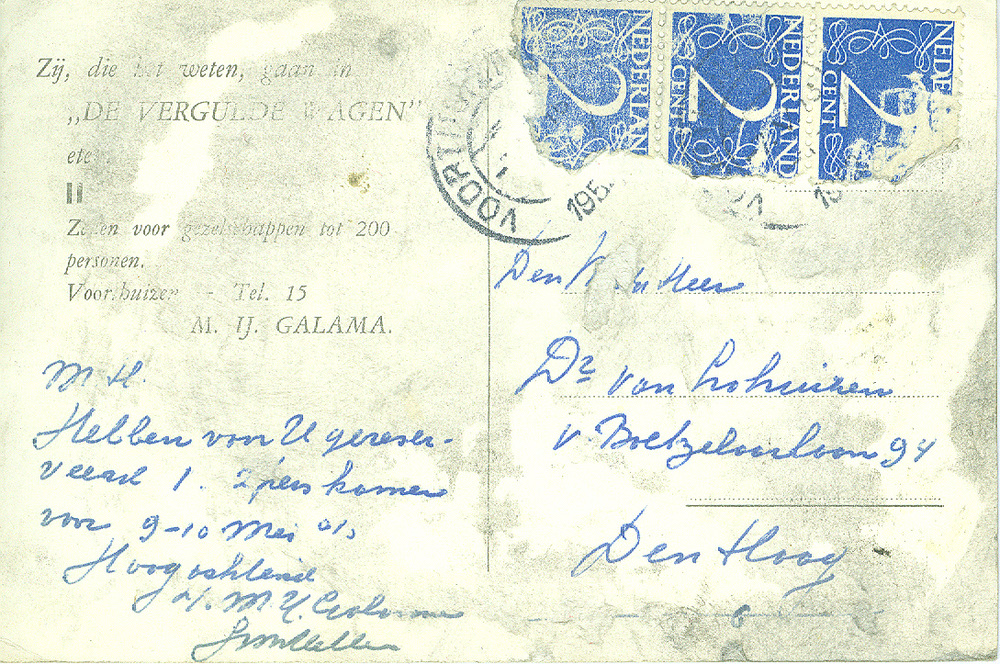 Zij, die het weten, gaan in
„DE VERGULDE WAGEN”
eten
Zalen voor gezelschappen tot 200
personen.
Voorthuizen - Tel. 15
M. IJ. GALAMA.
M H.
Hebben voor U gereser-
veerd 1. 2 pers kamer
voor 9-10 Mei a/s
Hoogachtend
M. Y. Galama
NEDERLAND
2 CENT
NEDERLAND
2 CENT
NEDE
2 CENT
VOORTHUIZEN
195
Den Heer
Dr van Lohuizen
v. Boetzelaerlaan 94
Den Haag